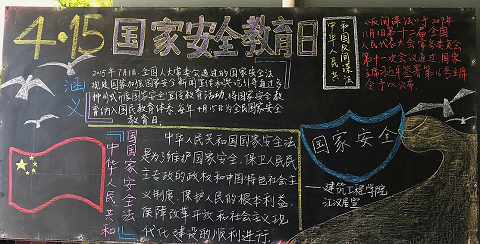 4·15 国家安全教育日
涵义
2015年7月1日,全国人大常委会通过的国家安全法
规定国家加强国家安全新闻宣传和舆论引导,通过多
种形式开展国家安全宣传教育活动,将国家安全教
育纳入国民教育体系,每年4月15日为全民国家安全
教育日。
中华人民共
和国反间谍法
《反间谍法》于2014年
11月1日第十二届全国
人民代表大会常务委员会
第十一次会议通过,国家
主席习近平签署第16号主席
令予以公布。
『中华人民共和
国国家安全法』
中华人民共和国国家安全法
是为了维护国家安全,保卫人民民
主专政的政权和中国特色社会主
义制度,保护人民的根本利益,
保障改革开放和社会主义现
代化建设的顺利进行。
国家安全
——建筑工程学院